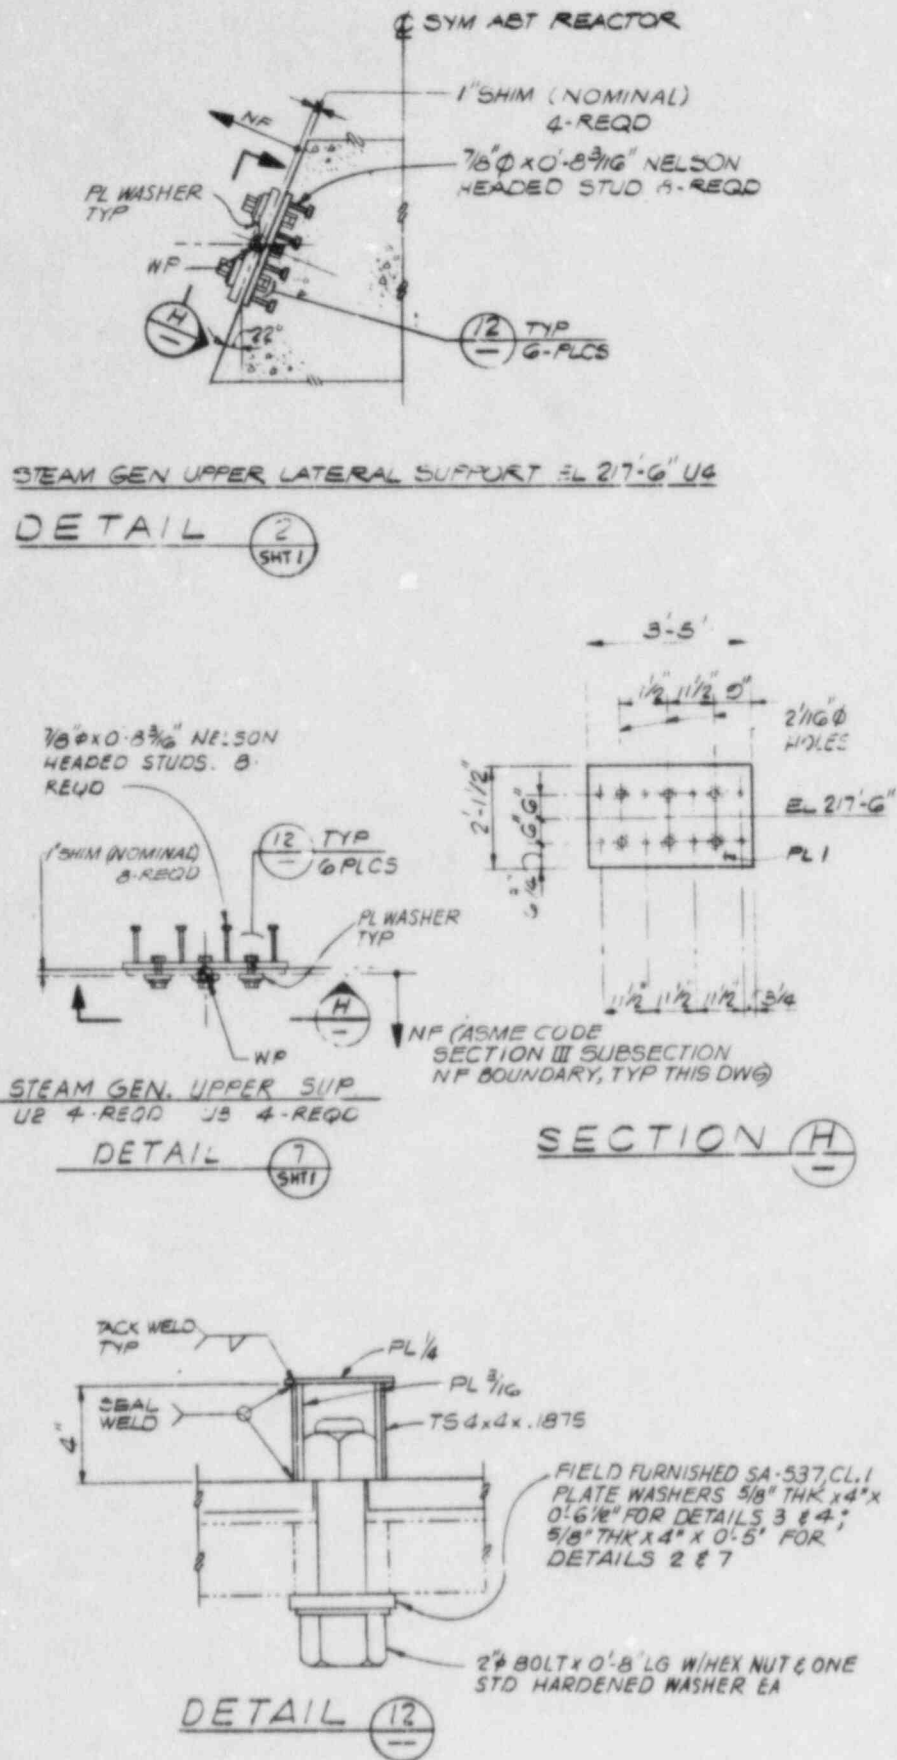 ℄ SYM ABT REACTOR
1" SHIM (NOMINAL)
4-REQD
NF
7/8"φ x 0'-8 3/16" NELSON
HEADED STUD 8-REQD
PL WASHER
TYP
WP
H
22°
12 TYP
6-PLCS
STEAM GEN UPPER LATERAL SUPPORT EL 217'-6" U4
DETAIL 2
SHT 1
3'-5"
11 1/2" 9"
2 1/16"φ
HOLES
7/8"φ x 0'-8 3/16" NELSON
HEADED STUDS. 8-
REQD
2'-1/2"
6" 6"
EL 217'-6"
PL 1
1" SHIM (NOMINAL)
8-REQD
12 TYP
6 PLCS
PL WASHER
TYP
6 1/4"
11 1/2" 11 1/2 11 1/2" 3 1/4
H
WP
NF (ASME CODE
SECTION III SUBSECTION
NF BOUNDARY, TYP THIS DWG)
STEAM GEN. UPPER SUP
U2 4-REQD U3 4-REQD
DETAIL 7
SHT 1
SECTION H
TACK WELD
TYP
PL 1/4
PL 3/16
SEAL
WELD
TS 4x4x.1875
4"
FIELD FURNISHED SA-537, CL. 1
PLATE WASHERS 5/8" THK x 4" x
0'-6 1/2" FOR DETAILS 3 & 4;
5/8" THK x 4" x 0'-5" FOR
DETAILS 2 & 7
2"φ BOLT x 0'-8" LG W/HEX NUT & ONE
STD HARDENED WASHER EA
DETAIL 12